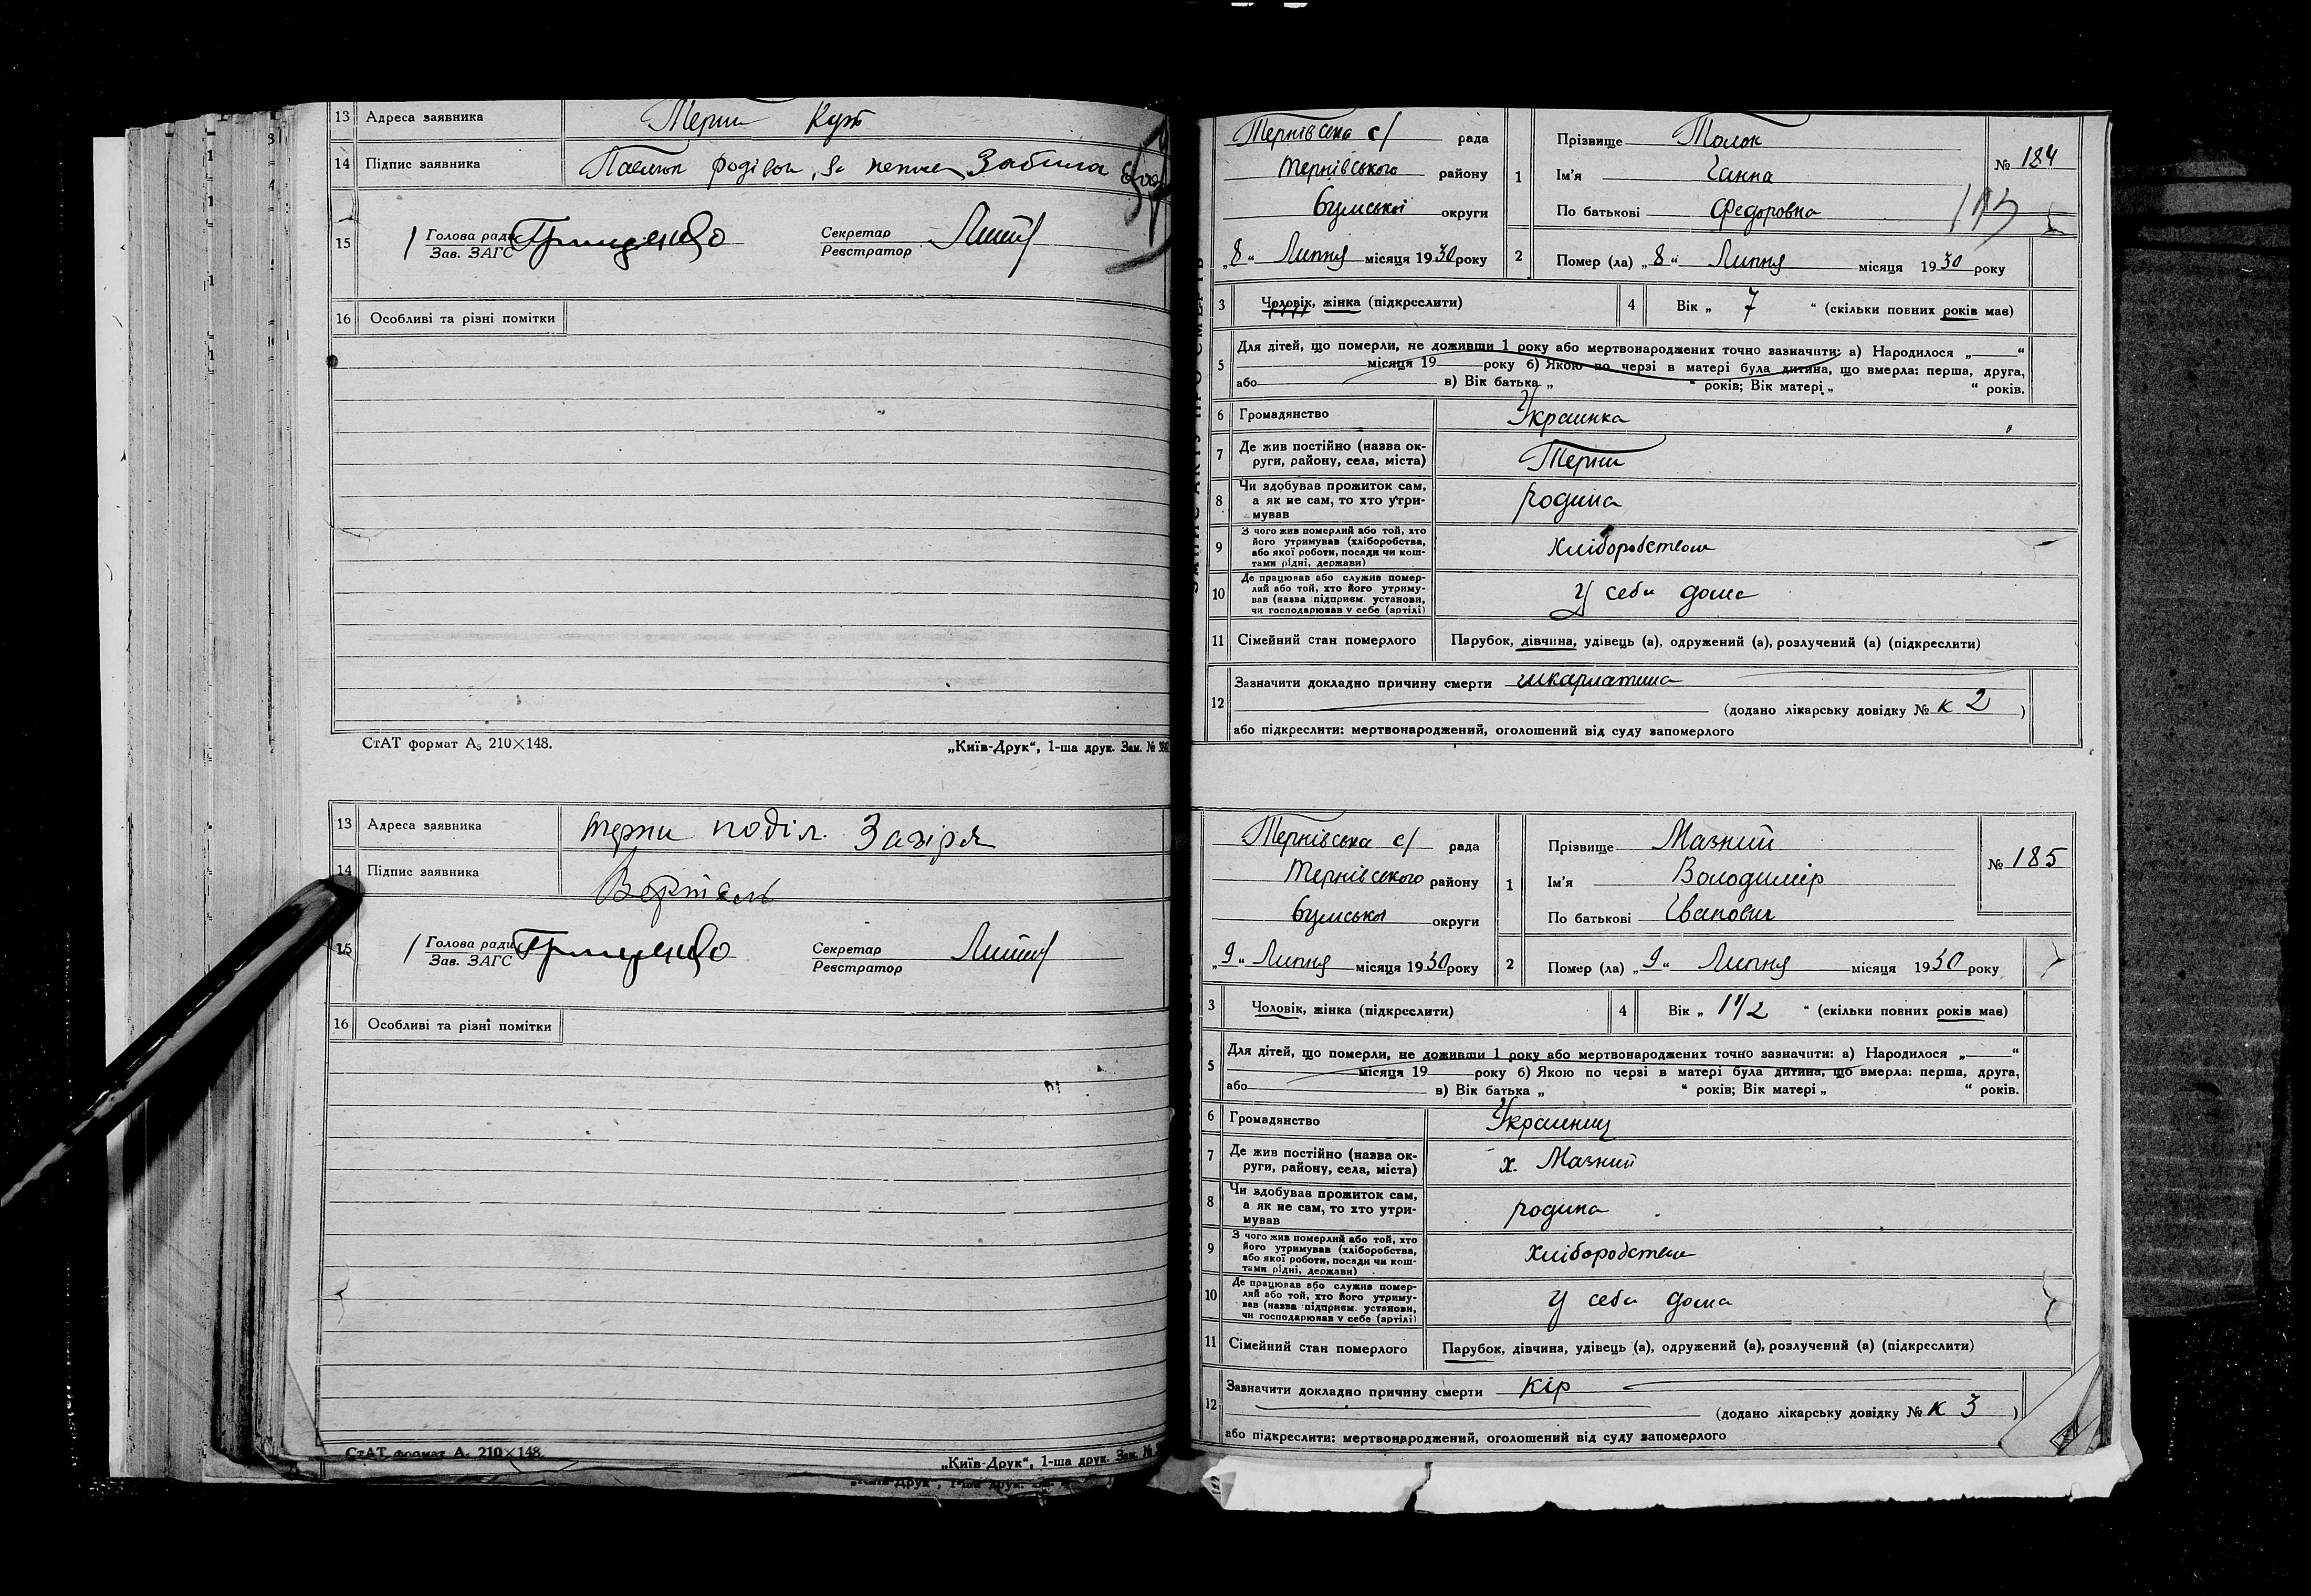 13 Адреса заявника Терни Кут
14 Підпис заявника родівон, За Забила
15 Голова ради Грищенко Секретар
Зав. ЗАГС Реєстратор
16 Особливі та різні помітки
СтАТ формат А5 210×148. „Київ-Друк“, 1-ша друк. Зам. №
13 Адреса заявника терни поділ. Загіря
14 Підпис заявника
15 Голова ради Грищенко Секретар
Зав. ЗАГС Реєстратор
16 Особливі та різні помітки
СтАТ формат А5 210×148.
„Київ-Друк“, 1-ша друк. Зам. №
Тернівська с/ рада
Тернівського району
Сумської округи
„8“ Липня місяця 1930 року
1 Прізвище Толок
Ім’я Ганна
По батькові Федоровна
№ 184
2 Помер (ла) „8“ Липня місяця 1930 року
3 Чоловік, жінка (підкреслити) 4 Вік „ 7 “ (скільки повних років має)
5 Для дітей, що померли, не доживши 1 року або мертвонароджених точно зазначити: а) Народилося „ “
місяця 19 року б) Якою по черзі в матері була дитина, що вмерла: перша, друга,
або в) Вік батька „ “ років; Вік матері „ “ років.
6 Громадянство Украинка
7 Де жив постійно (назва ок-
руги, району, села, міста) Терни
8 Чи здобував прожиток сам,
а як не сам, то хто утри-
мував родина
9 З чого жив померлий або той, хто
його утримував (хліборобства,
або якої роботи, посади чи кош-
тами рідні, держави) хліборобством
10 Де працював або служив помер-
лий або той, хто його утриму-
вав (назва підприєм. установи,
чи господарював у себе (артілі) У себи дома
11 Сімейний стан померлого Парубок, дівчина, удівець (а), одружений (а), розлучений (а) (підкреслити)
12 Зазначити докладно причину смерти шкарлатина
(додано лікарську довідку № к 2 )
або підкреслити: мертвонароджений, оголошений від суду запомерлого
Тернівська с/ рада
Тернівського району
Сумської округи
„9“ Липня місяця 1930 року
1 Прізвище Мазний
Ім’я Володимір
По батькові Іванович
№ 185
2 Помер (ла) „9“ Липня місяця 1930 року
3 Чоловік, жінка (підкреслити) 4 Вік „ 1 1/2 “ (скільки повних років має)
5 Для дітей, що померли, не доживши 1 року або мертвонароджених точно зазначити: а) Народилося „ “
місяця 19 року б) Якою по черзі в матері була дитина, що вмерла: перша, друга,
або в) Вік батька „ “ років; Вік матері „ “ років.
6 Громадянство Украинец
7 Де жив постійно (назва ок-
руги, району, села, міста) х. Мазний
8 Чи здобував прожиток сам,
а як не сам, то хто утри-
мував родина
9 З чого жив померлий або той, хто
його утримував (хліборобства,
або якої роботи, посади чи кош-
тами рідні, держави) хліборобством
10 Де працював або служив помер-
лий або той, хто його утриму-
вав (назва підприєм. установи,
чи господарював у себе (артілі) У себи дома
11 Сімейний стан померлого Парубок, дівчина, удівець (а), одружений (а), розлучений (а) (підкреслити)
12 Зазначити докладно причину смерти кір
(додано лікарську довідку № к 3 )
або підкреслити: мертвонароджений, оголошений від суду запомерлого